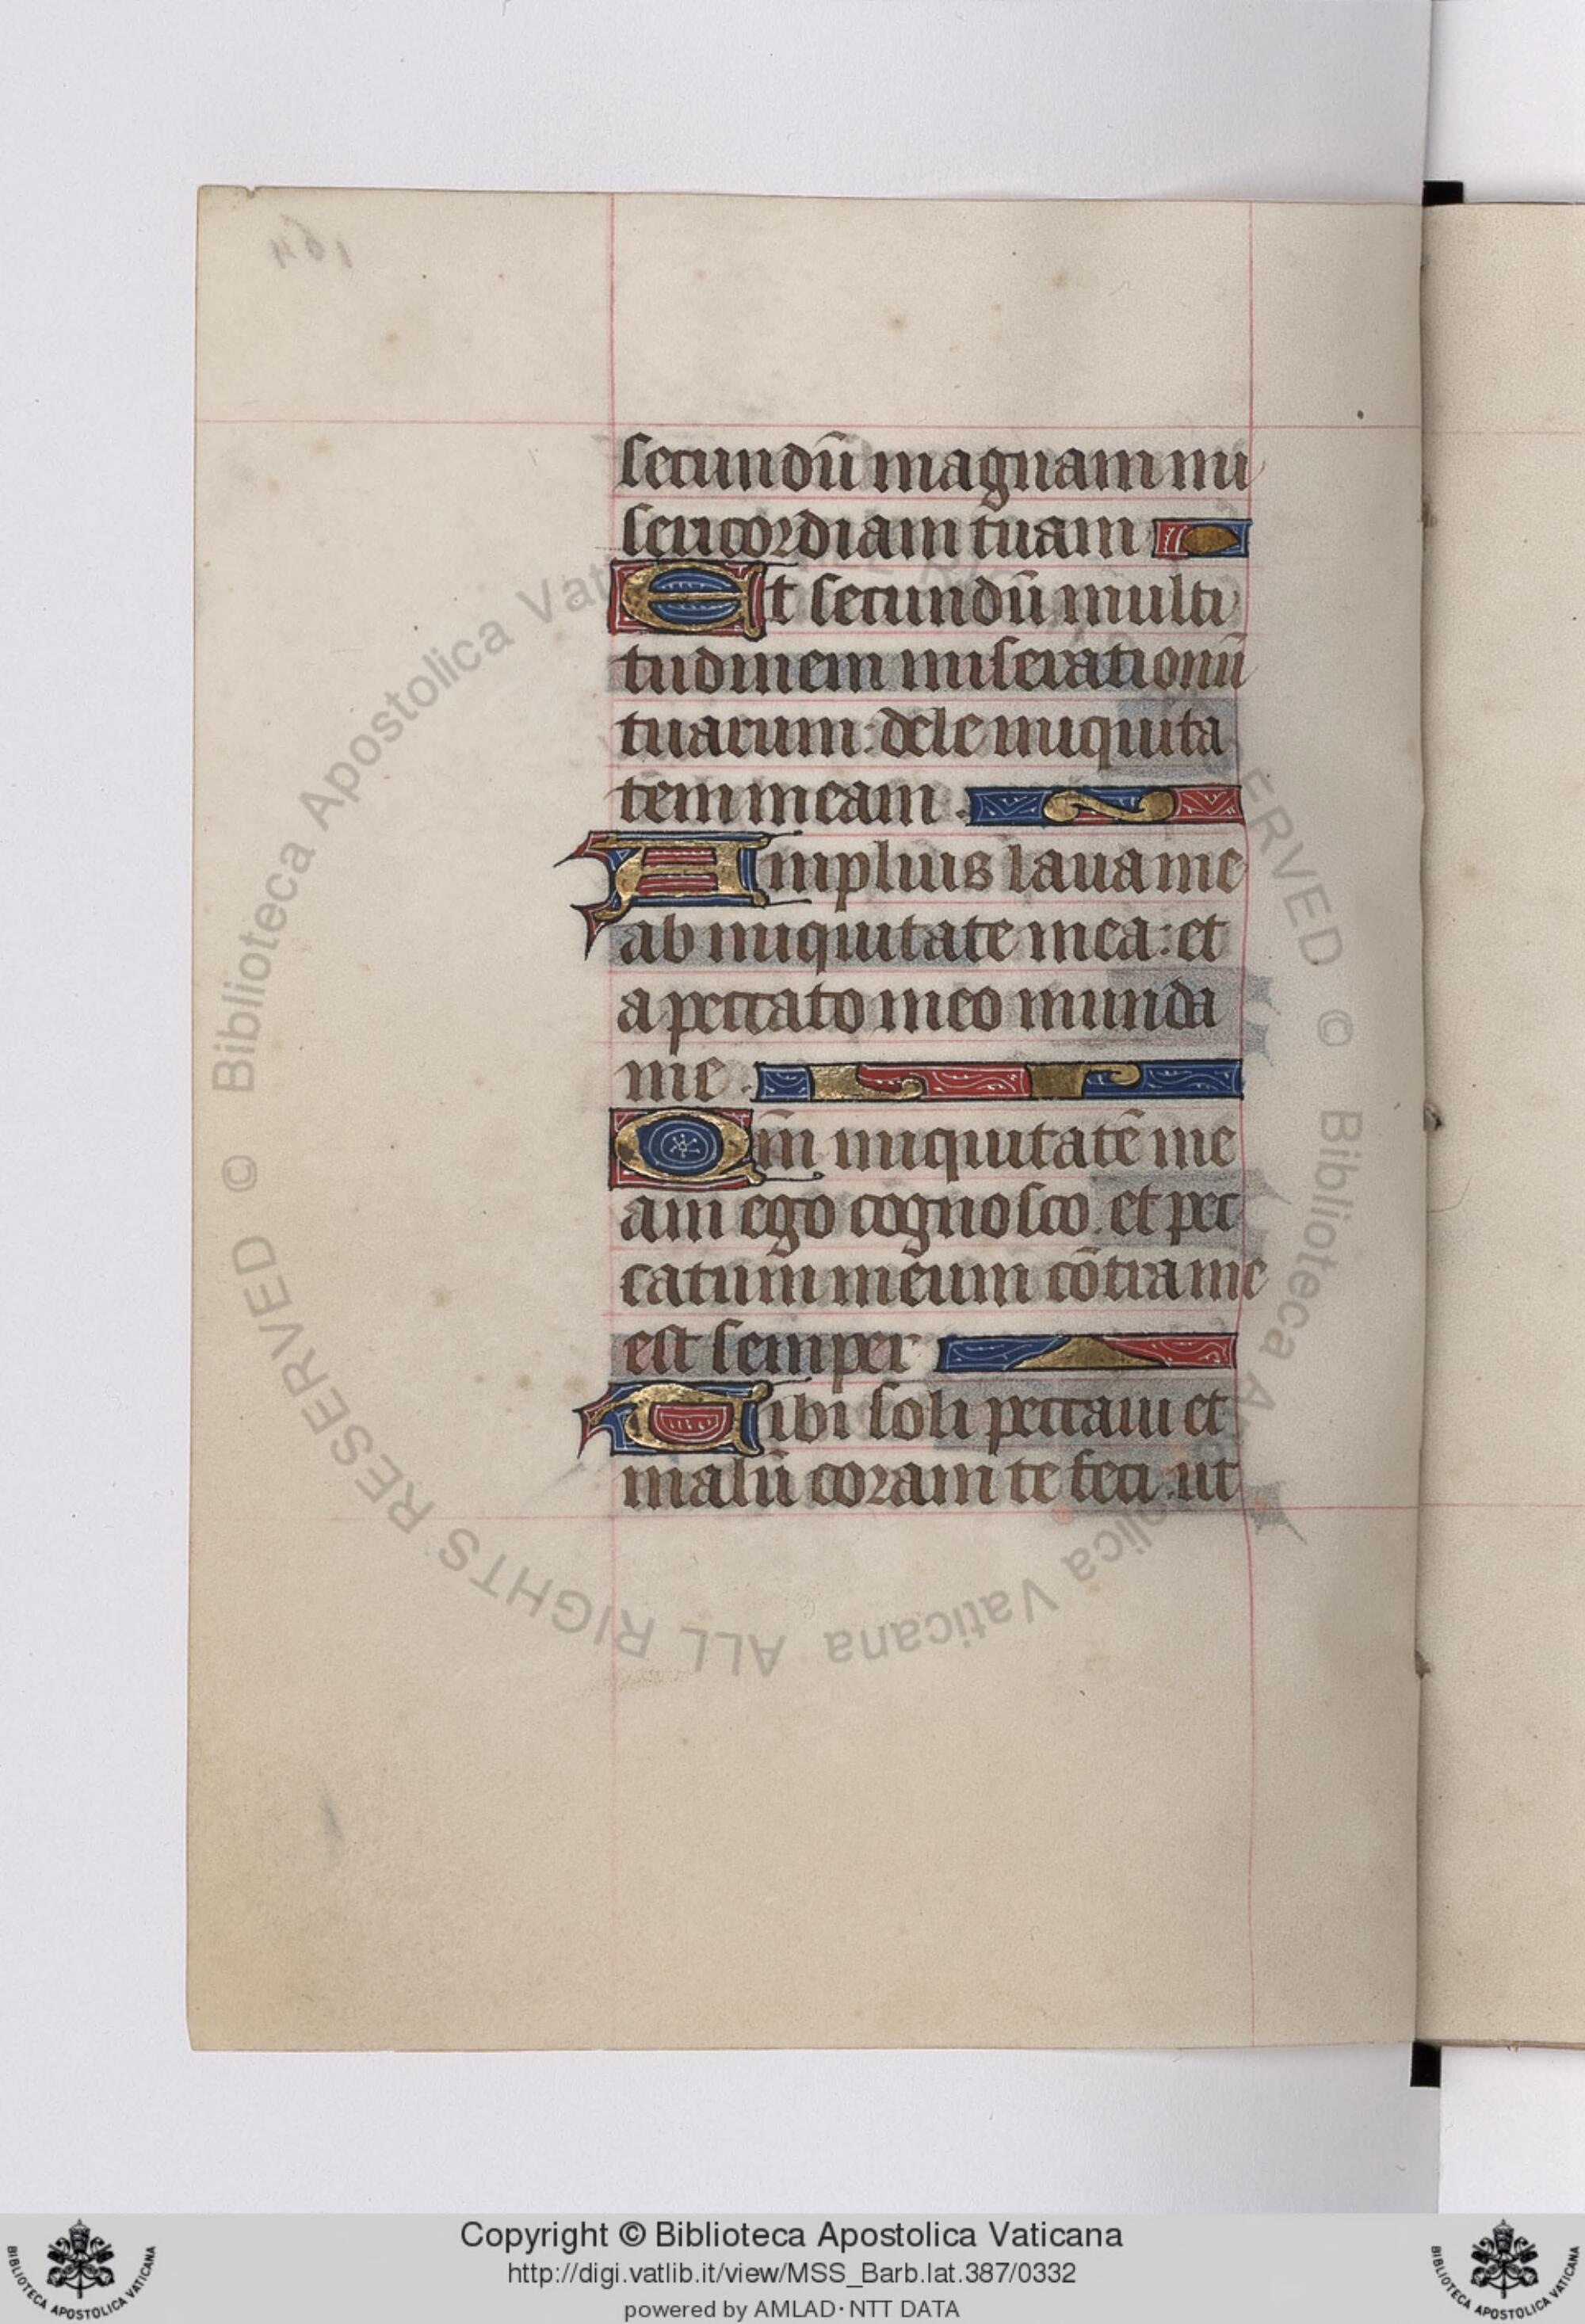 secundū magnam mi
sericordiam tuam
Et secundū multi
tudinem miserationū
tuarum: dele iniquita
tem meam.
Amplius laua me
ab iniquitate mea: et
a peccato meo munda
me.
Qm̄ iniquitatē me
am ego cognosco. et pec
catum meum cōtra me
est semper
Tibi soli peccaui et
malū coram te feci. ut
© Biblioteca Apostolica Vaticana ALL RIGHTS RESERVED © Biblioteca Apostolica Vaticana ALL RIGHTS RESERVED
Copyright © Biblioteca Apostolica Vaticana
http://digi.vatlib.it/view/MSS_Barb.lat.387/0332
powered by AMLAD·NTT DATA
BIBLIOTECA APOSTOLICA VATICANA
BIBLIOTECA APOSTOLICA VATICANA